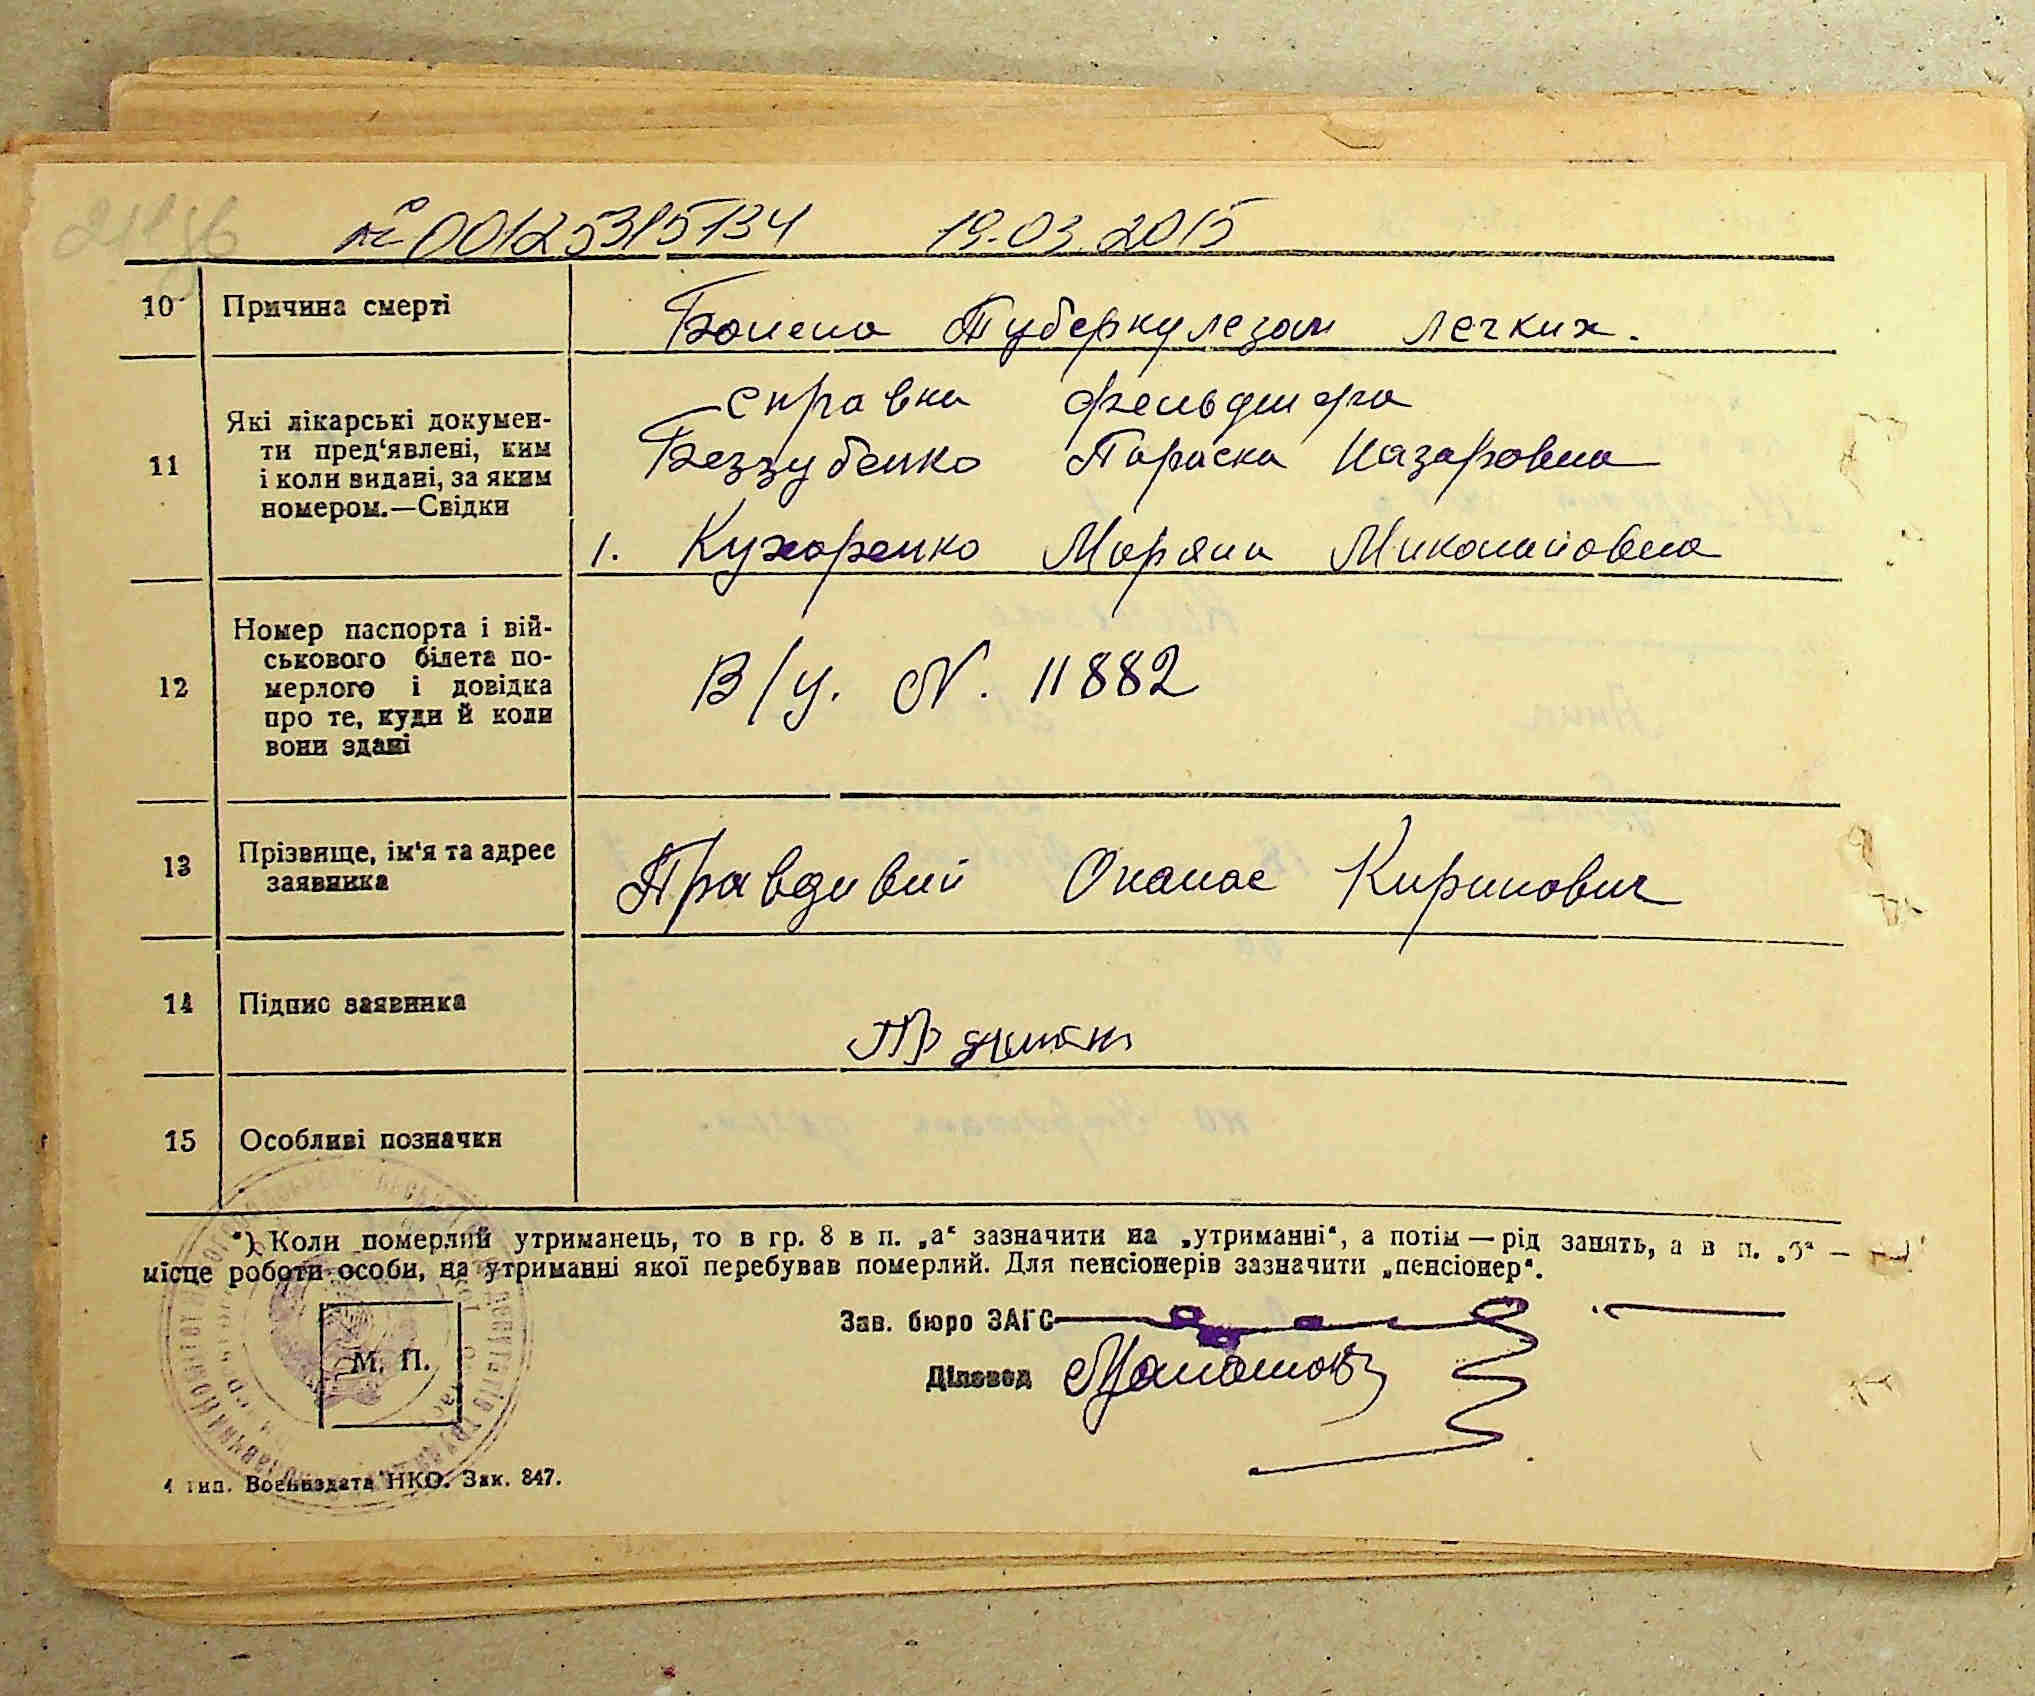 № 00125315134 19.03.2015
10 Причина смерті Болела Туберкулезом легких.
11 Які лікарські докумен-
ти пред‘явлені, ким
і коли видані, за яким
номером.—Свідки
Справка фельдшера
Беззубенко Параска Назаровна
1. Кухаренко Маряна Миколайовна
12 Номер паспорта і вій-
ськового білета по-
мерлого і довідка
про те, куди й коли
вони здані
В/у. N. 11882
13 Прізвище, ім‘я та адрес
заявника
Правдивий Опанас Кирилович
14 Підпис заявника
15 Особливі позначки
*) Коли померлий утриманець, то в гр. 8 в п. „а“ зазначити на „утриманні“, а потім — рід занять, а в п. „б“ —
місце роботи особи, на утриманні якої перебував померлий. Для пенсіонерів зазначити „пенсіонер“.
Зав. бюро ЗАГС
М. П.
Діловод
4 тип. Воениздата НКО. Зак. 847.